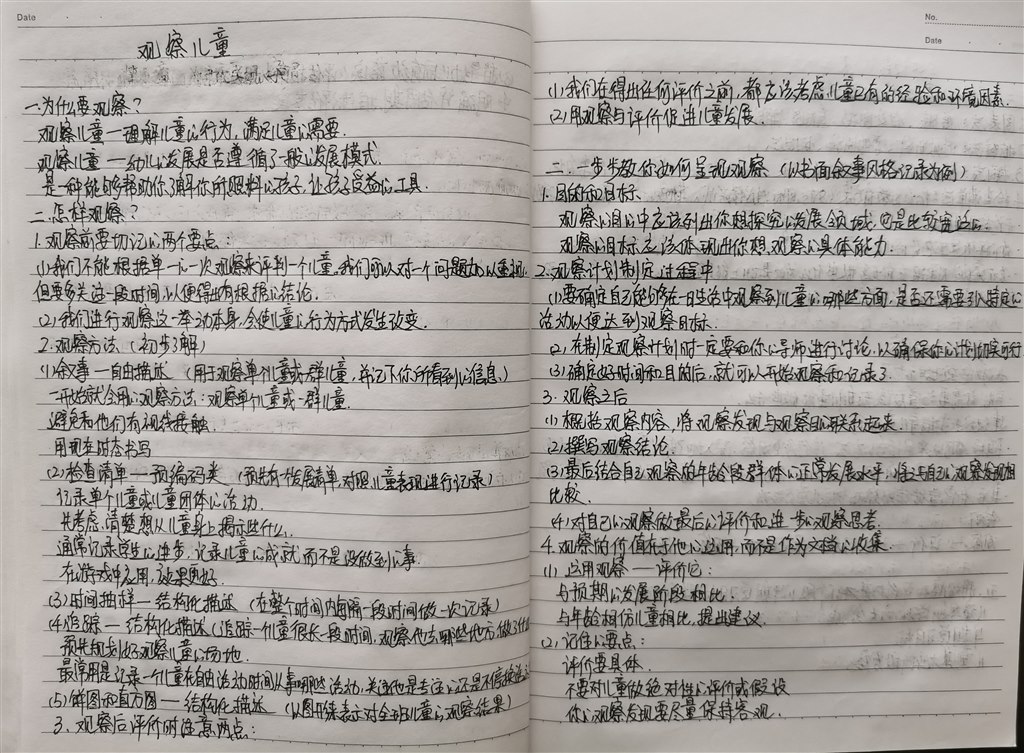 Date
观察儿童
一.为什么要观察?
观察儿童一理解儿童的行为,满足儿童的需要.
观察儿童一幼儿的发展是否遵循了一般的发展模式.
是一种能够帮助你了解你所照料的孩子,让孩子受益的工具.
二.怎样观察?
1.观察前要切记的两个要点:
(1)我们不能根据单一的一次观察来评判一个儿童,我们可以对一个问题加以重视,
但要多关注一段时间,以便得出有根据的结论.
(2)我们进行观察这一举动本身,会使儿童的行为方式发生改变.
2.观察方法(初步了解)
(1)叙事一自由描述(用于观察单个儿童或一群儿童,并记下你所看到的信息.)
一开始就会用的观察方法:观察单个儿童或一群儿童.
避免和他们有视线接触.
用现在时态书写
(2)检查清单一预编码类(预先有一发展清单,对照儿童表现进行记录)
记录单个儿童或儿童团体的活动.
先考虑清楚想从儿童身上揭示些什么.
通常记录学生的进步,记录儿童的成就而不是没做到的事.
在游戏中应用,效果更好.
(3)时间抽样一结构化描述(在整个时间内每隔一段时间做一次记录)
(4)追踪一结构化描述(追踪一个儿童很长一段时间,观察他去哪些地方,做了什么
预先规划好观察儿童的场地.
最常用是记录一个儿童在自由活动时间从事哪些活动,关注他是专注的还是不停换活动
(5)饼图和直方图一结构化描述(以图形来表示对全班儿童的观察结果)
3.观察后评价时注意两点:
No.
Date
(1)我们在得出任何评价之前,都应该考虑儿童已有的经验和环境因素.
(2)用观察与评价促进儿童发展.
二.一步步教你如何呈现观察(以书面叙事风格记录为例)
1.目的和目标
观察的目的中应该列出你想探究的发展领域,可是比较宽泛的.
观察的目标应该体现出你想观察的具体能力.
2.观察计划制定过程中
(1)要确定自己能够在一日生活中观察到儿童的哪些方面,是否还需要引入特定的
活动以便达到观察目标.
(2)在制定观察计划时一定要和你的导师进行讨论,以确保你的计划切实可行
(3)确定好时间和目的后,就可以开始观察和记录了.
3.观察之后
(1)概括观察内容,将观察发现与观察目的联系起来.
(2)撰写观察结论.
(3)最后结合自己观察的年龄段群体的正常发展水平,将其与自己的观察发现相
比较.
(4)对自己的观察做最后的评价和进一步的观察思考.
4.观察的价值在于他的运用,而不是作为文档的收集.
(1)运用观察一评价它:
与预期的发展阶段相比
与年龄相仿儿童相比,提出建议.
(2)记住的要点:
评价要具体.
不要对儿童做绝对性的评价或假设
你的观察发现要尽量保持客观.